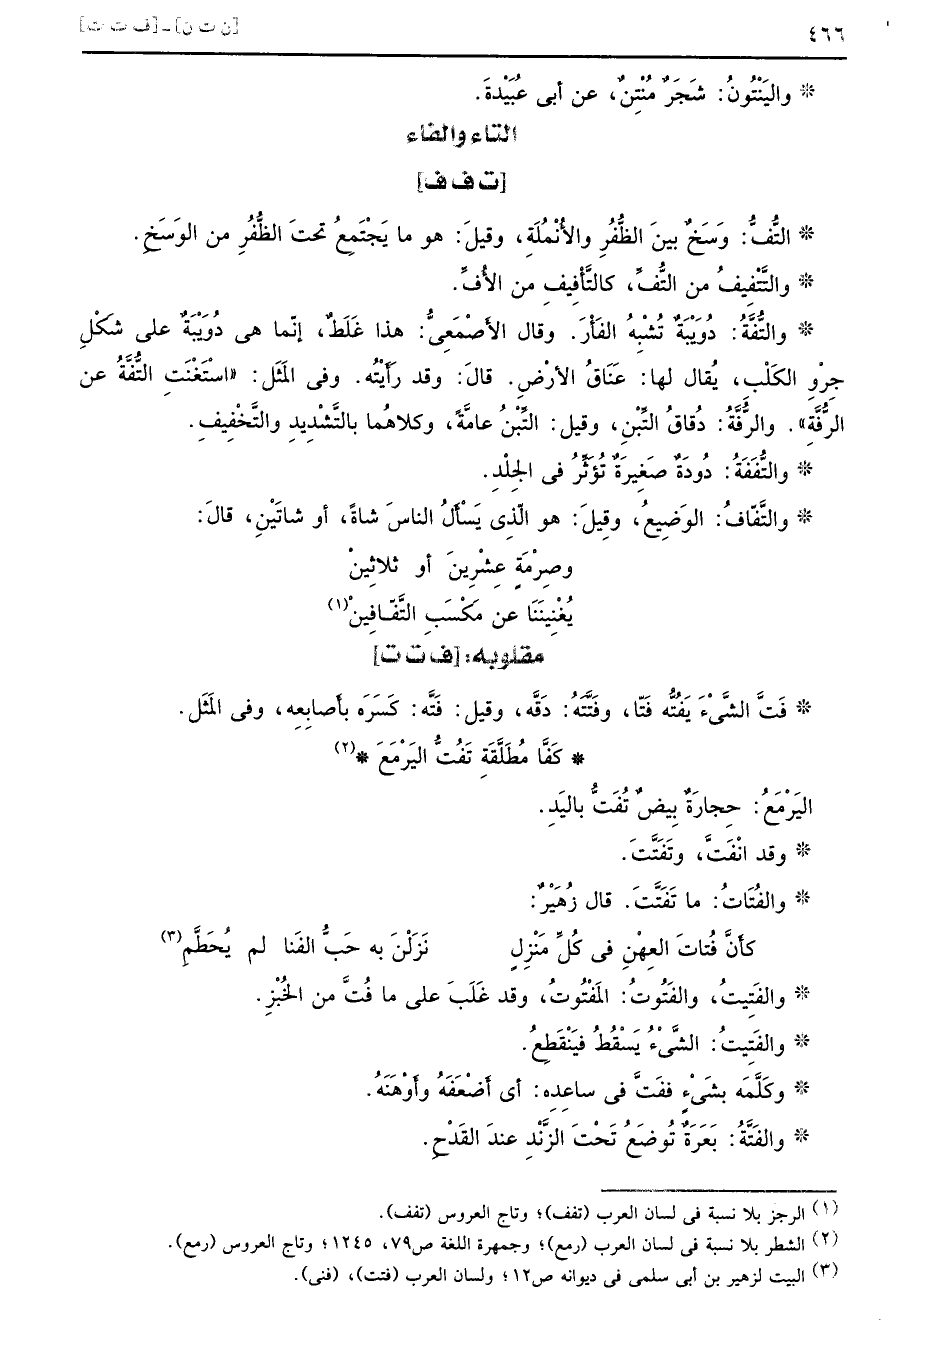 ٤٦٦
[ن ت ن] ـ [ف ت ت]
* واليَنْتُونُ: شَجَرٌ مُنْتِنٌ، عن أبى عُبَيْدةَ.
التاء والفاء
[ت ف ف]
* التُّفُّ: وَسَخٌ بينَ الظُّفُرِ والأُنْملَةِ، وقيلَ: هو ما يَجْتَمِعُ تحتَ الظُّفُرِ من الوَسَخِ.
* والتَّتْفِيفُ من التُّفِّ، كالتَّأفِيفِ من الأُفِّ.
* والتُّفَّةُ: دُوَيْبَةٌ تُشْبِهُ الفَأْرَ. وقال الأصْمَعِىُّ: هذا غَلَطٌ، إنّما هى دُوَيْبَةٌ على شَكْلِ
جِرْوِ الكَلْبِ، يُقال لها: عَنَاقُ الأرْضِ. قالَ: وقد رَأَيْتُه. وفى المَثَلِ: «اسْتَغْنَتِ التُّفَّةُ عن
الرُّفَّةِ». والرُّفَّةُ: دُقاقُ التِّبْنِ، وقيل: التِّبْنُ عامَّةً، وكلاهُما بالتَّشْدِيدِ والتَّخْفِيفِ.
* والتُّفَفَةُ: دُودَةٌ صَغِيرَةٌ تُؤَثِّرُ فى الجِلْدِ.
* والتَّفّافُ: الوَضِيعُ، وقيلَ: هو الّذِى يَسْأَلُ الناسَ شاةً، أو شاتَيْنِ، قالَ:
وصِرْمَةٍ عِشْرِينَ أو ثلاثِينْ
يُغْنِينَنَا عن مَكْسَبِ التَّفّافِينْ(١)
مقلوبه: [ف ت ت]
* فَتَّ الشَّىْءَ يَفُتُّه فَتّا، وفَتَّتَهُ: دَقَّه، وقيل: فَتَّه: كَسَرَه بأصابِعِه، وفى المَثَل.
* كَفَّا مُطَلَّقَةٍ تَفُتُّ اليَرْمَعَ *(٢)
اليَرْمَعُ: حِجارَةٌ بِيضٌ تُفَتُّ باليَدِ.
* وقد انْفَتَّ، وتَفَتَّتَ.
* والفُتَاتُ: ما تَفَتَّتَ. قال زُهَيْرٌ:
كأنَّ فُتاتَ العِهْنِ فى كُلِّ مَنْزِلٍ نَزَلْنَ به حَبُّ الفَنا لم يُحَطَّمِ(٣)
* والفَتِيتُ، والفَتُوتُ: المَفْتُوتُ، وقد غَلَبَ على ما فُتَّ من الخُبْزِ.
* والفَتِيتُ: الشَّىْءُ يَسْقُطُ فيَنْقَطِعُ.
* وكَلَّمَه بشَىْءٍ ففَتَّ فى ساعِدِه: أى أضْعَفَهُ وأوْهَنَهُ.
* والفَتَّةُ: بَعَرَةٌ تُوضَعُ تَحْتَ الزَّنْدِ عندَ القَدْحِ.
(١) الرجز بلا نسبة فى لسان العرب (تفف)؛ وتاج العروس (تفف).
(٢) الشطر بلا نسبة فى لسان العرب (رمع)؛ وجمهرة اللغة ص٧٩، ١٢٤٥؛ وتاج العروس (رمع).
(٣) البيت لزهير بن أبى سلمى فى ديوانه ص١٢؛ ولسان العرب (فتت)، (فنى).